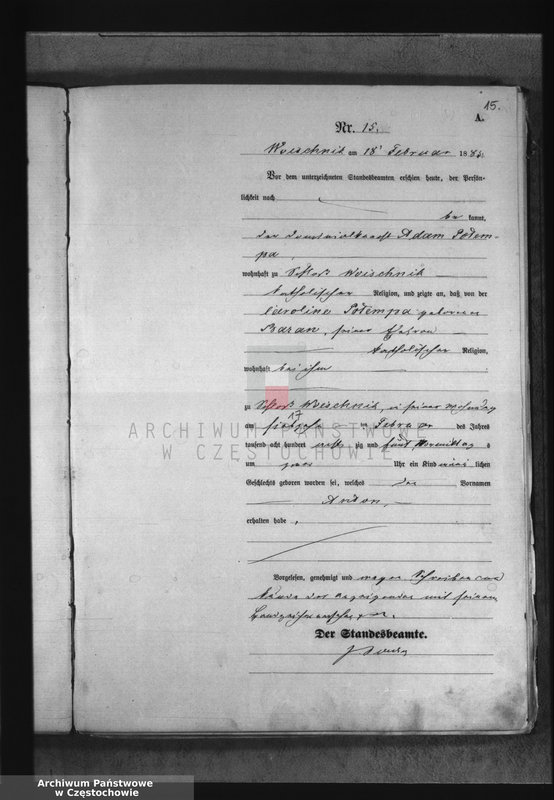 15.
A.
Nr. 15.
Woischnik am 18 Februar 1885
Vor dem unterzeichneten Standesbeamten erschien heute, der Persön-
lichkeit nach
be kannt,
der Dominialknecht Adam Potem-
pa,
wohnhaft zu Schloß Woischnik
katholischer Religion, und zeigte an, daß von der
Caroline Potempa geborenen
Baran, seiner Ehefrau
katholischer Religion,
wohnhaft bei ihm
zu Schloß Woischnik, in seiner Wohnung
am 17 im Februar des Jahres
tausend acht hundert acht zig und fünf Vormittag s
um Uhr ein Kind lichen
Geschlechts geboren worden sei, welches den Vornamen
Anton,
erhalten habe,
Vorgelesen, genehmigt und wegen Schreibens un
kunde des Anzeigenden mit seinem
Handzeichen versehen
Der Standesbeamte.
ARCHIWUM PAŃSTWOWE
W CZĘSTOCHOWIE
Archiwum Państwowe
w Częstochowie